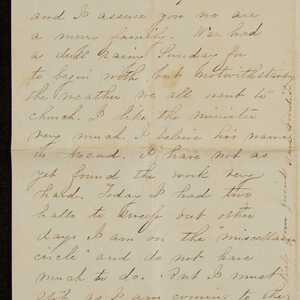 and I assure you we are
a merry family. We had
a dull rainy Sunday for
to begin with, but notwithstanding
the weather we all went to
church. I like the minister
very much I believe his name
is
I have not as
yet found the work very
hard. Today I had two
halls to sweep but other
days I am on the "miscellan
circle" and do not have
much to do. But I must
stop as I am coming to the